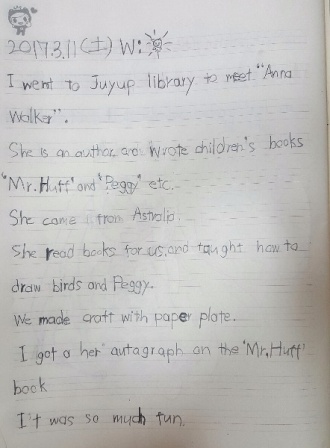 2017.3.11(土) W:
I went to Juyup library to meet "Anna
Walker".
She is an author, and wrote children's books
"Mr.Huff" and "Peggy" etc.
She come from Astralia.
She read books for us, and taught how to
draw birds and Peggy.
We made craft with paper plate.
I got a her autagraph an the 'Mr.Huff'
book
I't was so much fun.